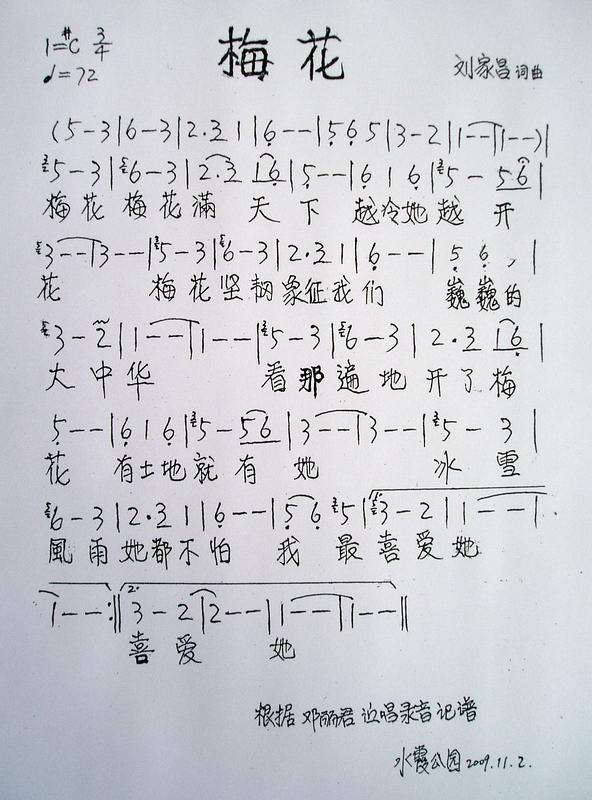 1=#C 3/4
♩=72
梅花
刘家昌 词曲
(5-3|6-3|2·3 1|6--|5 6 5|3-2|1--|1--)|
5-3|6-3|2·3 16|5--|6 1 6|5-56|
梅花 梅花满 天 下 越冷她越 开
3--|3--|5-3|6-3|2·3 1|6--|5 6 ,|
花 梅花坚韧象征我们 巍巍的
3-2|1--|1--|5-3|6-3|2·3 16|
大中华 看那遍地开了梅
5--|6 1 6|5-56|3--|3--|5-3|
花 有土地就有 她 冰 雪
6-3|2·3 1|6--|5 6 5|3-2|1--|
風雨她都不怕 我 最喜爱她
1--:‖3-2|2--|1--|1--‖
喜爱 她
根据 邓丽君 演唱录音记谱
水霞公园 2009.11.2.